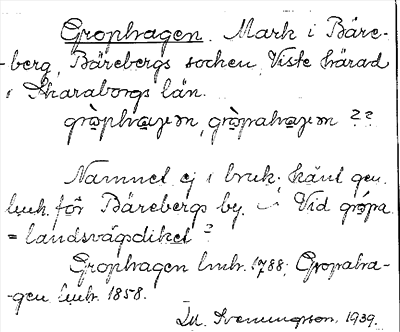 Grophagen. Mark i Bäre-
-berg, Bärebergs socken, Viste härad
i Skaraborgs län.
gròphagen, gròpahagen ??
Namnet ej i bruk; känt gen.
lmk. för Bärebergs by. Vid gropa
= landsvägsdiket?
Grophagen lmk. 1788; Gropaha-
-gen lmk. 1858.
1939.